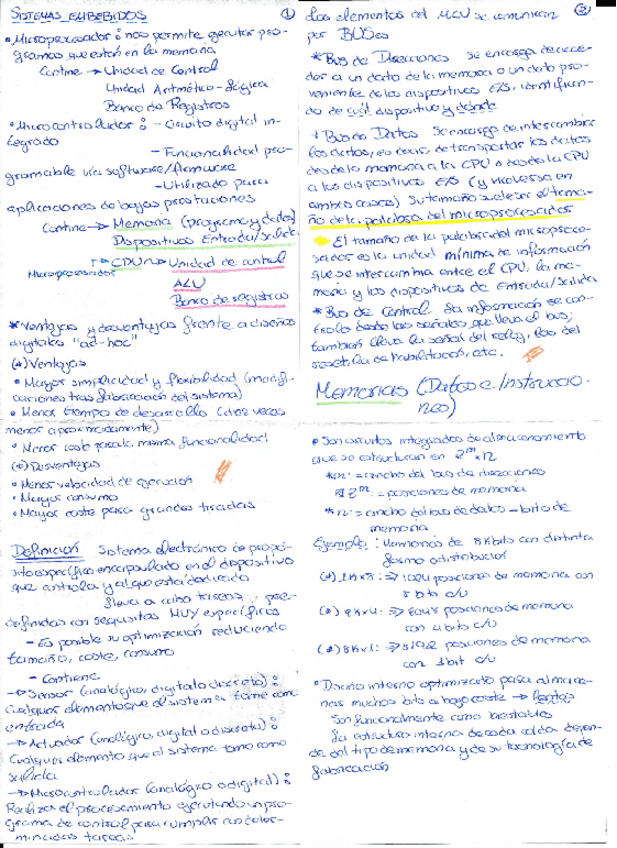 SISTEMAS EMBEBIDOS ①
• Microprocesador: nos permite ejecutar pro-
gramas que están en la memoria
Contine → Unidad de Control
Unidad Aritmético-Lógica
Banco de Registros
• Microcontrolador: - Circuito digital in-
tegrado
- Funcionalidad pro-
gramable vía software/firmware
- Utilizado para
aplicaciones de bajas prestaciones
Contine → Memoria (programa y datos)
Dispositivos Entrada/Salida
CPU → Unidad de control
Microprocesador
ALU
Banco de registros
* Ventajas y desventajas frente a diseños
digitales "ad-hoc"
(*) Ventajas
• Mayor simplicidad y flexibilidad (modifi-
caciones tras fabricación del sistema)
• Menor tiempo de desarrollo (diez veces
menor aproximadamente)
• Menor coste para la misma funcionalidad
(*) Desventajas
• Menor velocidad de ejecución
• Mayor consumo
• Mayor coste para grandes tiradas
Definición Sistema electrónico de propó-
sito específico encapsulado en el dispositivo
que controla y al que está dedicado
lleva a cabo tareas pre-
definidas con requisitos MUY específicos
- Es posible su optimización reduciendo
tamaño, coste, consumo
- Contiene
→ Sensor (analógico, digital o discreto):
Cualquier elemento que el sistema tome como
entrada
→ Actuador (analógico, digital o discreto):
Cualquier elemento que el sistema tome como
salida
→ Microcontrolador (analógico o digital):
Realiza el procesamiento ejecutando un pro-
grama de control para cumplir con deter-
minadas tareas
②
Los elementos del MCU se comunican
por BUSes
* Bus de Direcciones Se encarga de acce-
der a un dato de la memoria o un dato pro-
veniente de los dispositivos E/S, identifican-
do de cuál dispositivo y dónde
* Bus de Datos Se encarga de intercambiar
los datos, es decir, de transportar los datos
desde la memoria a la CPU o desde la CPU
a los dispositivos E/S (y viceversa en
ambos casos) Su tamaño suele ser el tama-
ño de la palabra del microprocesador
El tamaño de la palabra del microproce-
sador es la unidad mínima de información
que se intercambia entre el CPU, la me-
moria y los dispositivos de Entrada/Salida
* Bus de Control La información se con-
trola desde las señales que lleva el bus;
también lleva la señal del reloj, las del
reset, la de habilitación, etc.
Memorias (Datos e Instruccio-
nes)
• Son circuitos integrados de almacenamiento
que se estructuran en 2^m · n
* m: = ancho del bus de direcciones
2^m: = posiciones de memoria
* n: = ancho del bus de datos - bits de
memoria
Ejemplo: Memorias de 8Kbits con distinta
forma o distribución
(*) 1K×8: ⇒ 1024 posiciones de memoria con
8 bits c/u
posiciones de memoria
con 4 bits c/u
(*) 8K×1: ⇒ 8192 posiciones de memoria
con 1 bit c/u
• Diseño interno optimizado para almace-
nar muchos bits a bajo coste → lentas
Son funcionalmente como biestables
La estructura interna de cada celda depen-
de del tipo de memoria y de su tecnología de
fabricación